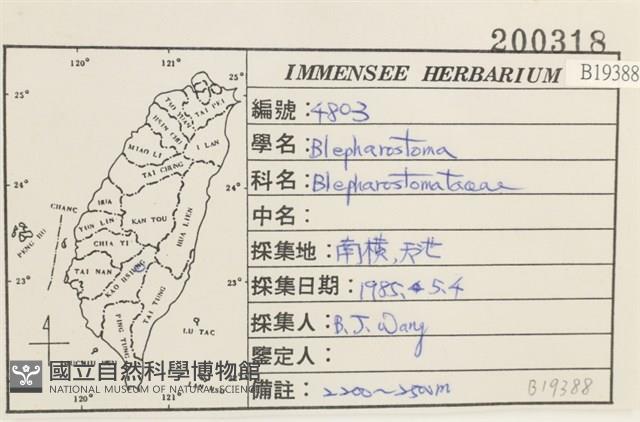 200318
IMMENSEE HERBARIUM
B19388
編號：4803
學名：Blepharostoma
科名：Blepharostomataceae
中名：
採集地：南橫,天池
採集日期：1985.5.4
採集人：B. J. Wang
鑒定人：
備註：2200～2500m
B19388
120°
121°
25°
25°
TAI PEI
TAO YUAN
HSIN CHU
I LAN
MIAO LI
TAI CHUNG
24°
24°
CHANG
HUA
KAN TOU
HUA LIEN
YUN LIN
PENG HU
CHIA YI
TAI NAN
KAO HSIUNG
23°
23°
TAI TUNG
PING TUNG
LU TAC
120°
121°
國立自然科學博物館
NATIONAL MUSEUM OF NATURAL SCIENCE